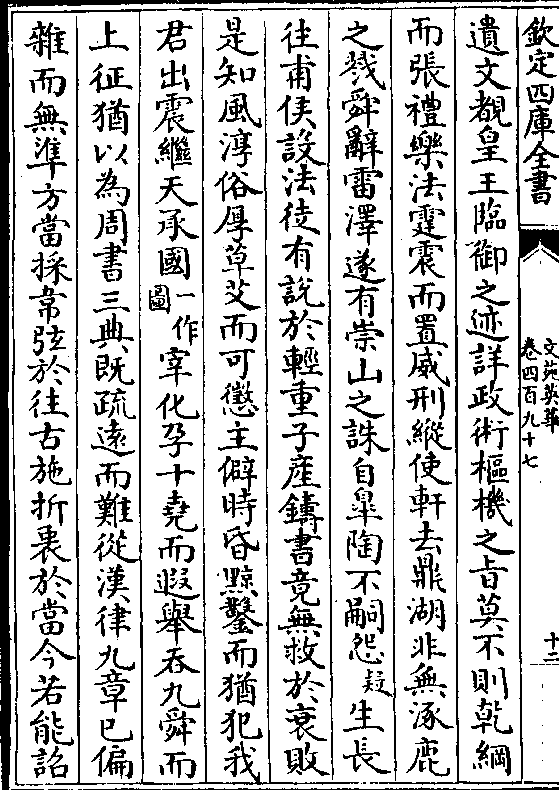 欽定四庫全書
文苑英華
卷四百九十七
十二
遺文覩皇王臨御之迹詳政術樞機之旨莫不則乾綱
而張禮樂法霆震而置威刑縱使軒去鼎湖非無涿鹿
之戮舜辭雷澤遂有崇山之誅自皐陶不嗣怨疑生長
往甫侯設法徒有說於輕重子產鑄書竟無救於衰敗
是知風淳俗厚草艾而可懲主僻時昏黥鑿而猶犯我
君出震繼天承國一作圖宰化孕十堯而遐舉吞九舜而
上征猶以為周書三典既疏遠而難從漢律九章已偏
雜而無準方當採韋弦於往古施折衷於當今若能詔